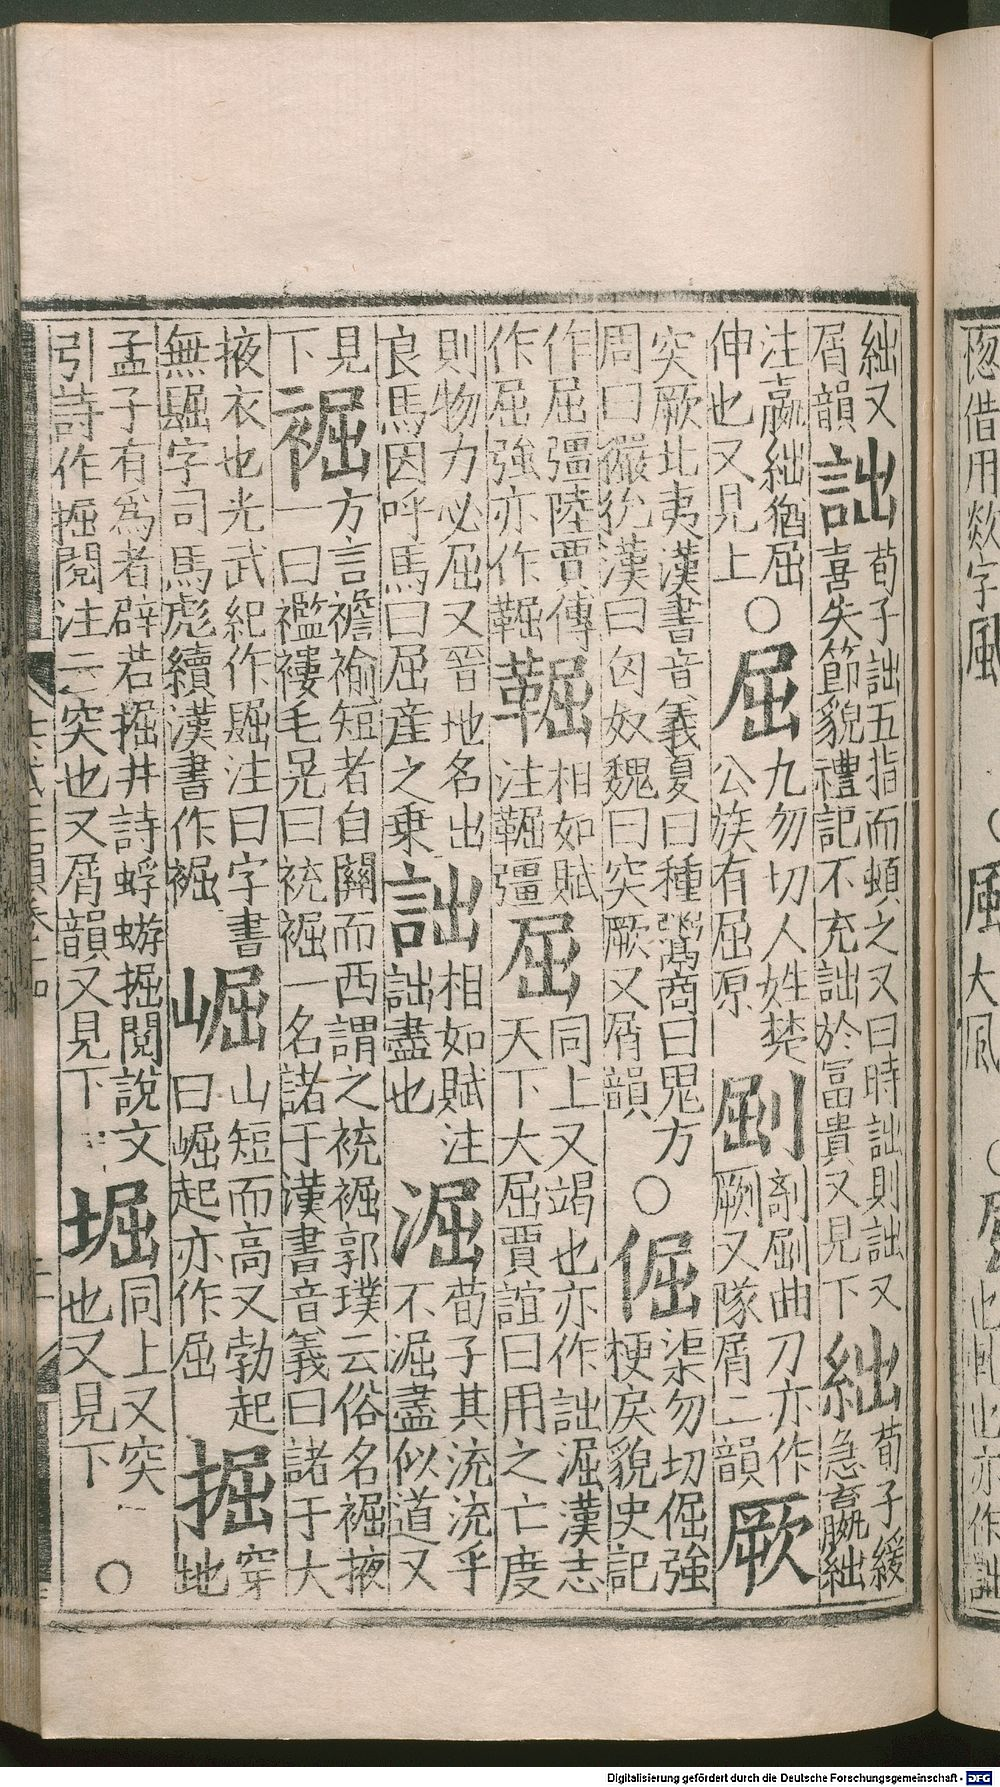 絀又屑韻詘荀子詘五指而頓之又曰時詘則詘又喜失節貌禮記不充詘於富貴又見下絀荀子緩急嬴絀
注嬴絀猶屈伸也又見上○屈九勿切人姓楚公族有屈原剞曲刀亦作劂又隊屑二韻厥
突厥北夷漢書音義夏曰種鬻商曰鬼方周曰玁狁漢曰匈奴魏曰突厥又屑韻○倔渠勿切倔強梗戾貌史記
作屈彊陸賈傳作屈強亦作相如賦注彊屈同上又竭也亦作詘淈漢志天下大屈賈誼曰用之亡度
則物力必屈又晉地名出良馬因呼馬曰屈產之乗詘相如賦注詘盡也淈荀子其流流乎不淈盡似道又
見下䘿方言襜褕短者自關而西謂之䘪䘿郭璞云俗名䘿掖一曰襤褸毛晃曰䘪䘿一名諸于漢書音義曰諸于大
掖衣也光武紀作镼注曰字書無镼字司馬彪續漢書作䘿崛山短而高又勃起曰崛起亦作屈掘穿地
孟子有爲者辟若掘井詩蜉蝣掘閱說文引詩作掘閱注云突也又屑韻又見下堀同上又突也又見下○
Digitalisierung gefördert durch die Deutsche Forschungsgemeinschaft - DFG